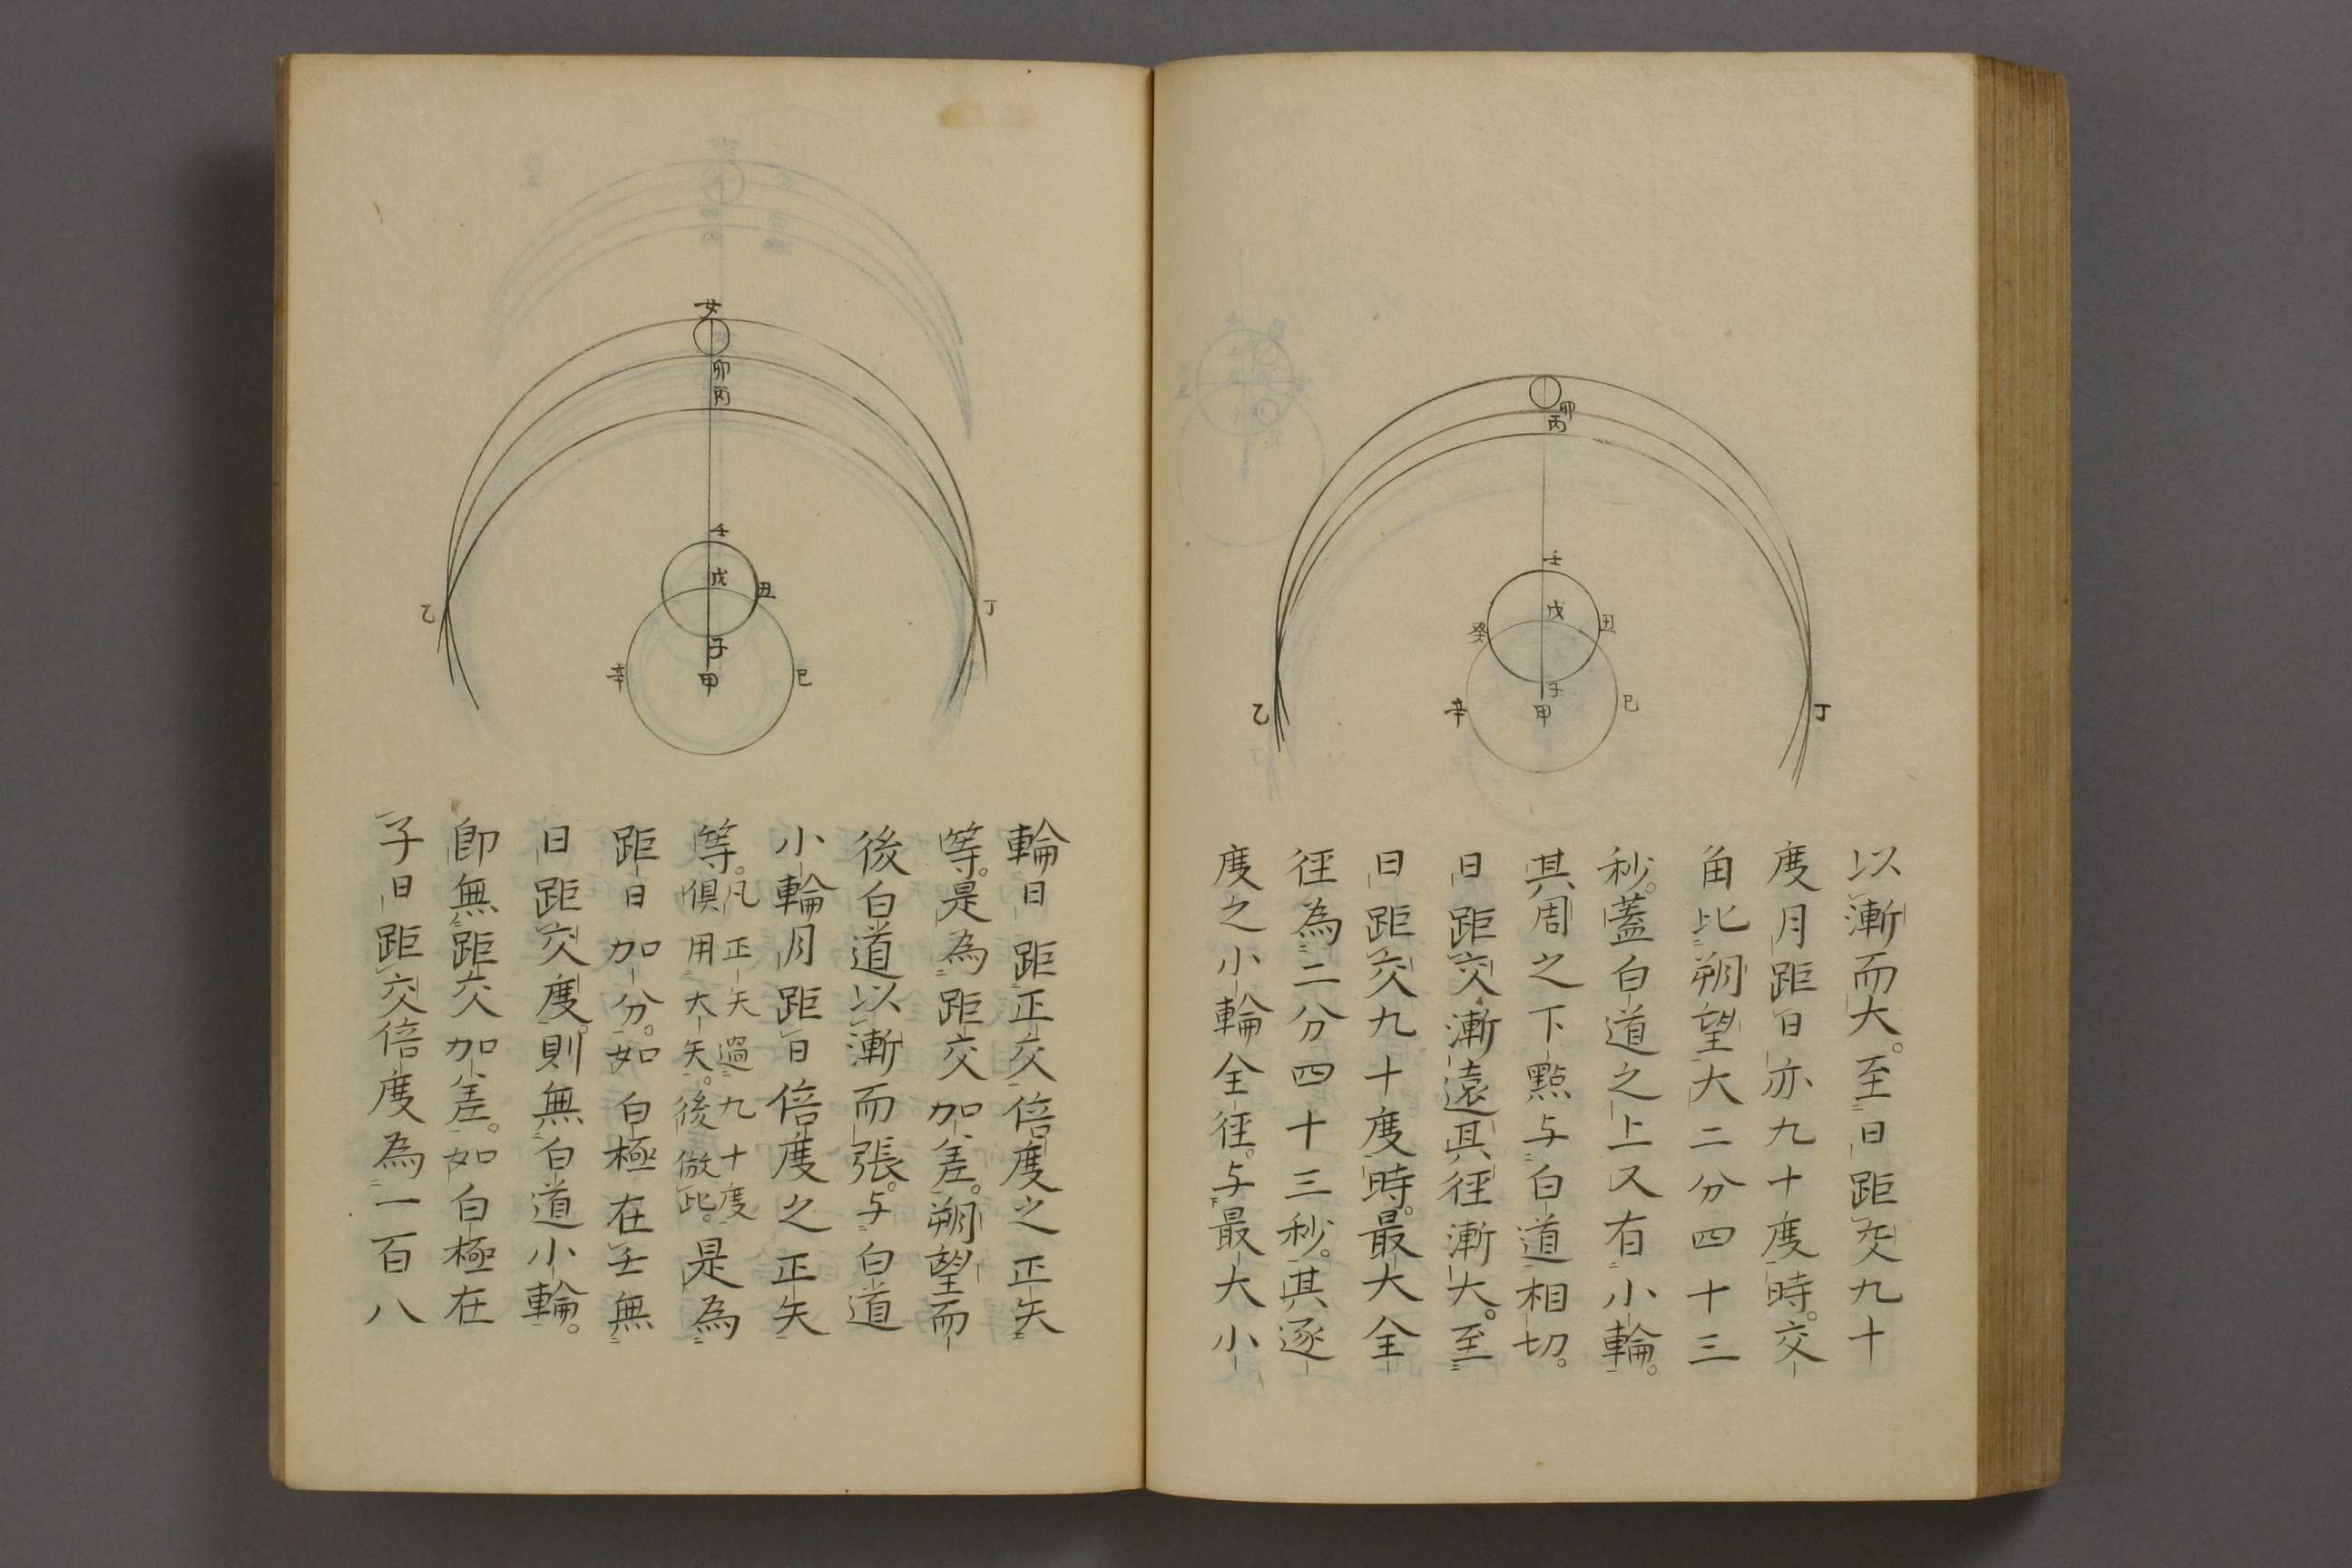 卯
丙
壬
戊
癸
丑
子
甲
辛
巳
乙
丁
以漸而大。至日距交九十
度月距日亦九十度時。交
角比朔望大二分四十三
秒。蓋白道之上又有小輪。
其周之下點与白道相切。
日距交漸遠其徑漸大。至
日距交九十度時。最大全
徑為二分四十三秒。其逐
度之小輪全徑。与最大小
女
卯
丙
壬
戊
丑
子
甲
辛
巳
乙
丁
輪日距正交倍度之正矢
等。是為距交加差。朔望而
後白道以漸而張。与白道
小輪月距日倍度之正矢
等。凡正矢過九十度俱用大矢。後倣此。是為
距日加分。如白極在壬無
日距交度。則無白道小輪。
即無距交加差。如白極在
子日距交倍度為一百八